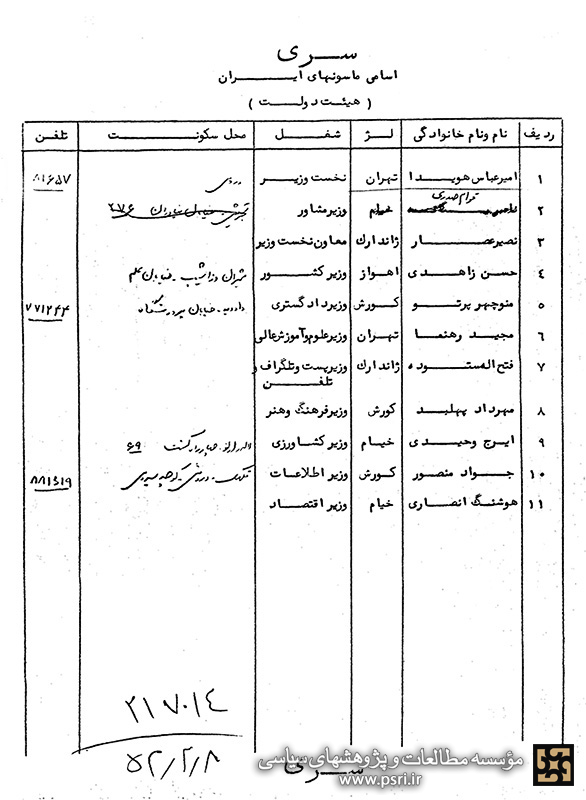 سری
اسامی ماسونهای ایران
( هیئت دولت )
ردیف نام ونام خانوادگی لژ شغل محل سکونت تلفن
۱ امیرعباس هویدا تهران نخست وزیر
۲ خیام وزیر مشاور
۳ نصیر عصار ژاندارک معاون نخست وزیر
۴ حسن زاهدی اهواز وزیر کشور
۵ منوچهر پرتو کورش وزیر دادگستری ۷۷۱۲۴۴
۶ مجید رهنما تهران وزیر علوم و آموزش عالی
۷ فتح اله ستوده ژاندارک وزیر پست و تلگراف و
تلفن
۸ مهرداد پهلبد کورش وزیر فرهنگ و هنر
۹ ایرج وحیدی خیام وزیر کشاورزی ۶۹
۱۰ جواد منصور کورش وزیر اطلاعات
۱۱ هوشنگ انصاری خیام وزیر اقتصاد
۲۱۷۰۱۴
۵۲/۲/۸
سری
مؤسسه مطالعات و پژوهشهای سیاسی
www.psri.ir